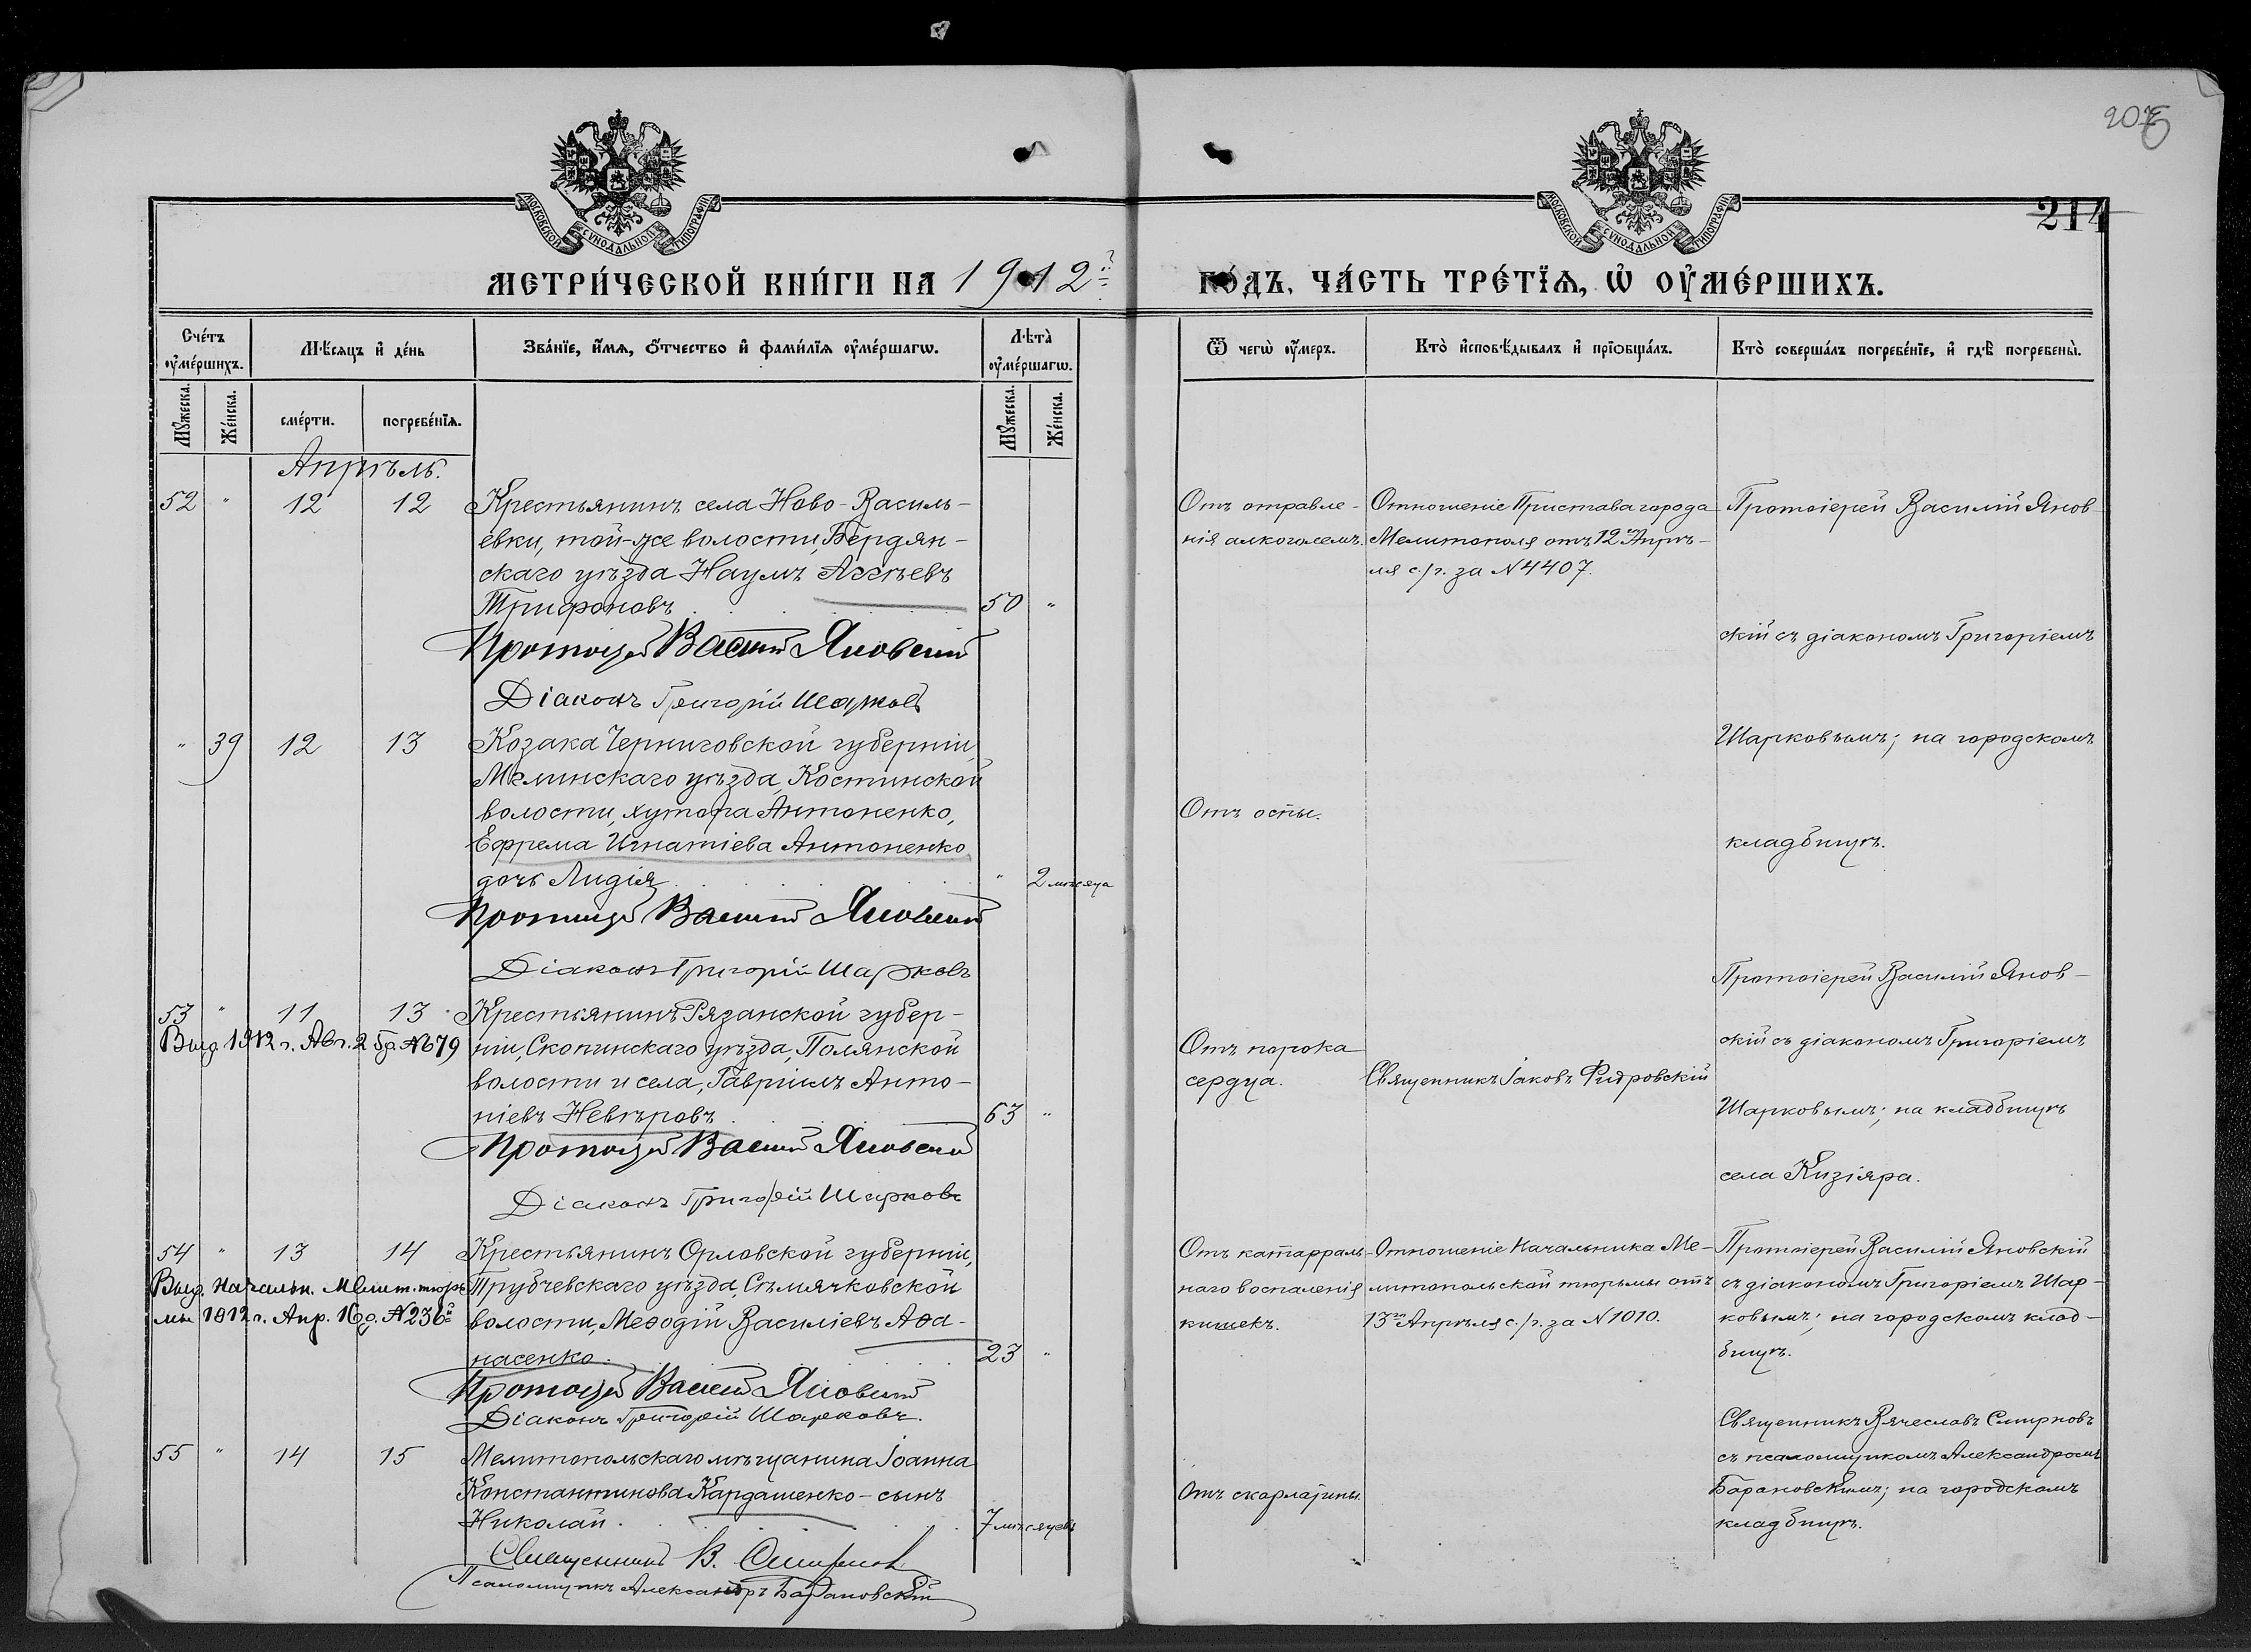 206
214
МОСКОВСКОЙ СѴНОДАЛЬНОЙ ТИПОГРАФІИ
МОСКОВСКОЙ СѴНОДАЛЬНОЙ ТИПОГРАФІИ
МЕТРИ́ЧЕСКОЙ КНИ́ГИ НА 1912й
ГО́ДЪ, ЧА́СТЬ ТРЕ́ТЇѦ, Ѡ҆ ОУ҆МЕ́РШИХЪ.
Сче́тъ оу҆ме́ршихъ.
Мѣ́сяцъ и҆ де́нь
Зва́нїе, и҆́мѧ, о҆́тчество и҆ фами́лїѧ оу҆ме́ршагѡ.
Лѣта̀ оу҆ме́ршагѡ.
Ѿ чегѡ̀ оу҆́меръ.
Кто̀ и҆сповѣ́дывалъ и҆ прїѡбща́лъ.
Кто̀ соверша́лъ погребе́нїе, и҆ гдѣ̀ погребены̀.
Мꙋ́жеска.
Же́нска.
сме́рти.
погребе́нїѧ.
Мꙋ́жеска.
Же́нска.
Апрѣль.
52 " 12 12
Крестьянинъ села Ново-Василь-
евки, той-же волости, Бердян-
скаго уѣзда Наумъ Аггѣевъ
Трифоновъ 50 "
Протоіерей Василій Яновскій
Діаконъ Григорій Шарковъ
Отъ отравле-
нія алкоголемъ.
Отношеніе Пристава города
Мелитополя отъ 12го Апрѣ-
ля с/г. за №4407.
Протоіерей Василій Янов-
скій съ діакономъ Григоріемъ
Шарковымъ; на городскомъ
кладбищѣ.
" 39 12 13
Козака Черниговской губерніи,
Мглинскаго уѣзда, Костинской
волости, хутора Антоненко,
Ефрема Игнатіева Антоненко
дочь Лидія " 2 мѣсяца
Протоіерей Василій Яновскій
Діаконъ Григорій Шарковъ
Отъ оспы.
53 " 11 13
Выд. 1912 г. Авг. 2 №679
Крестьянинъ Рязанской губер-
ніи, Скопинскаго уѣзда, Полянской
волости и села, Гавріилъ Анто-
ніевъ Невѣровъ 63 "
Протоіерей Василій Яновскій
Діаконъ Григорій Шарковъ
Отъ порока
сердца.
Священникъ Іаковъ
Протоіерей Василій Янов-
скій съ діакономъ Григоріемъ
Шарковымъ; на кладбищѣ
села Кизіяра.
54 " 13 14
Выд. Начальн. Мелит. тюрь
мы 1912 г. Апр. 16 д. №236й
Крестьянинъ Орловской губерніи,
Трубчевскаго уѣзда, Сѣмячковской
волости, Меѳодій Василіевъ Аѳа-
насенко. 23 "
Протоіерей Василій Яновскій
Діаконъ Григорій Шарковъ.
Отъ катарраль-
наго воспаленія
кишекъ.
Отношеніе Начальника Ме-
литопольской тюрьмы отъ
13го Апрѣля с/г. за №1010.
Протоіерей Василій Яновскій
съ діакономъ Григоріемъ Шар-
ковымъ; на городскомъ клад-
бищѣ.
55 " 14 15
Мелитопольскаго мѣщанина Іоанна
Константинова Кардашенко – сынъ
Николай. 7 мѣсяцевъ
Священникъ В. Смирновъ
Псаломщикъ Александръ Барановскій
Отъ скарлатины.
Священникъ Вячеславъ Смирновъ
съ псаломщикомъ Александромъ
Барановскимъ; на городскомъ
кладбищѣ.